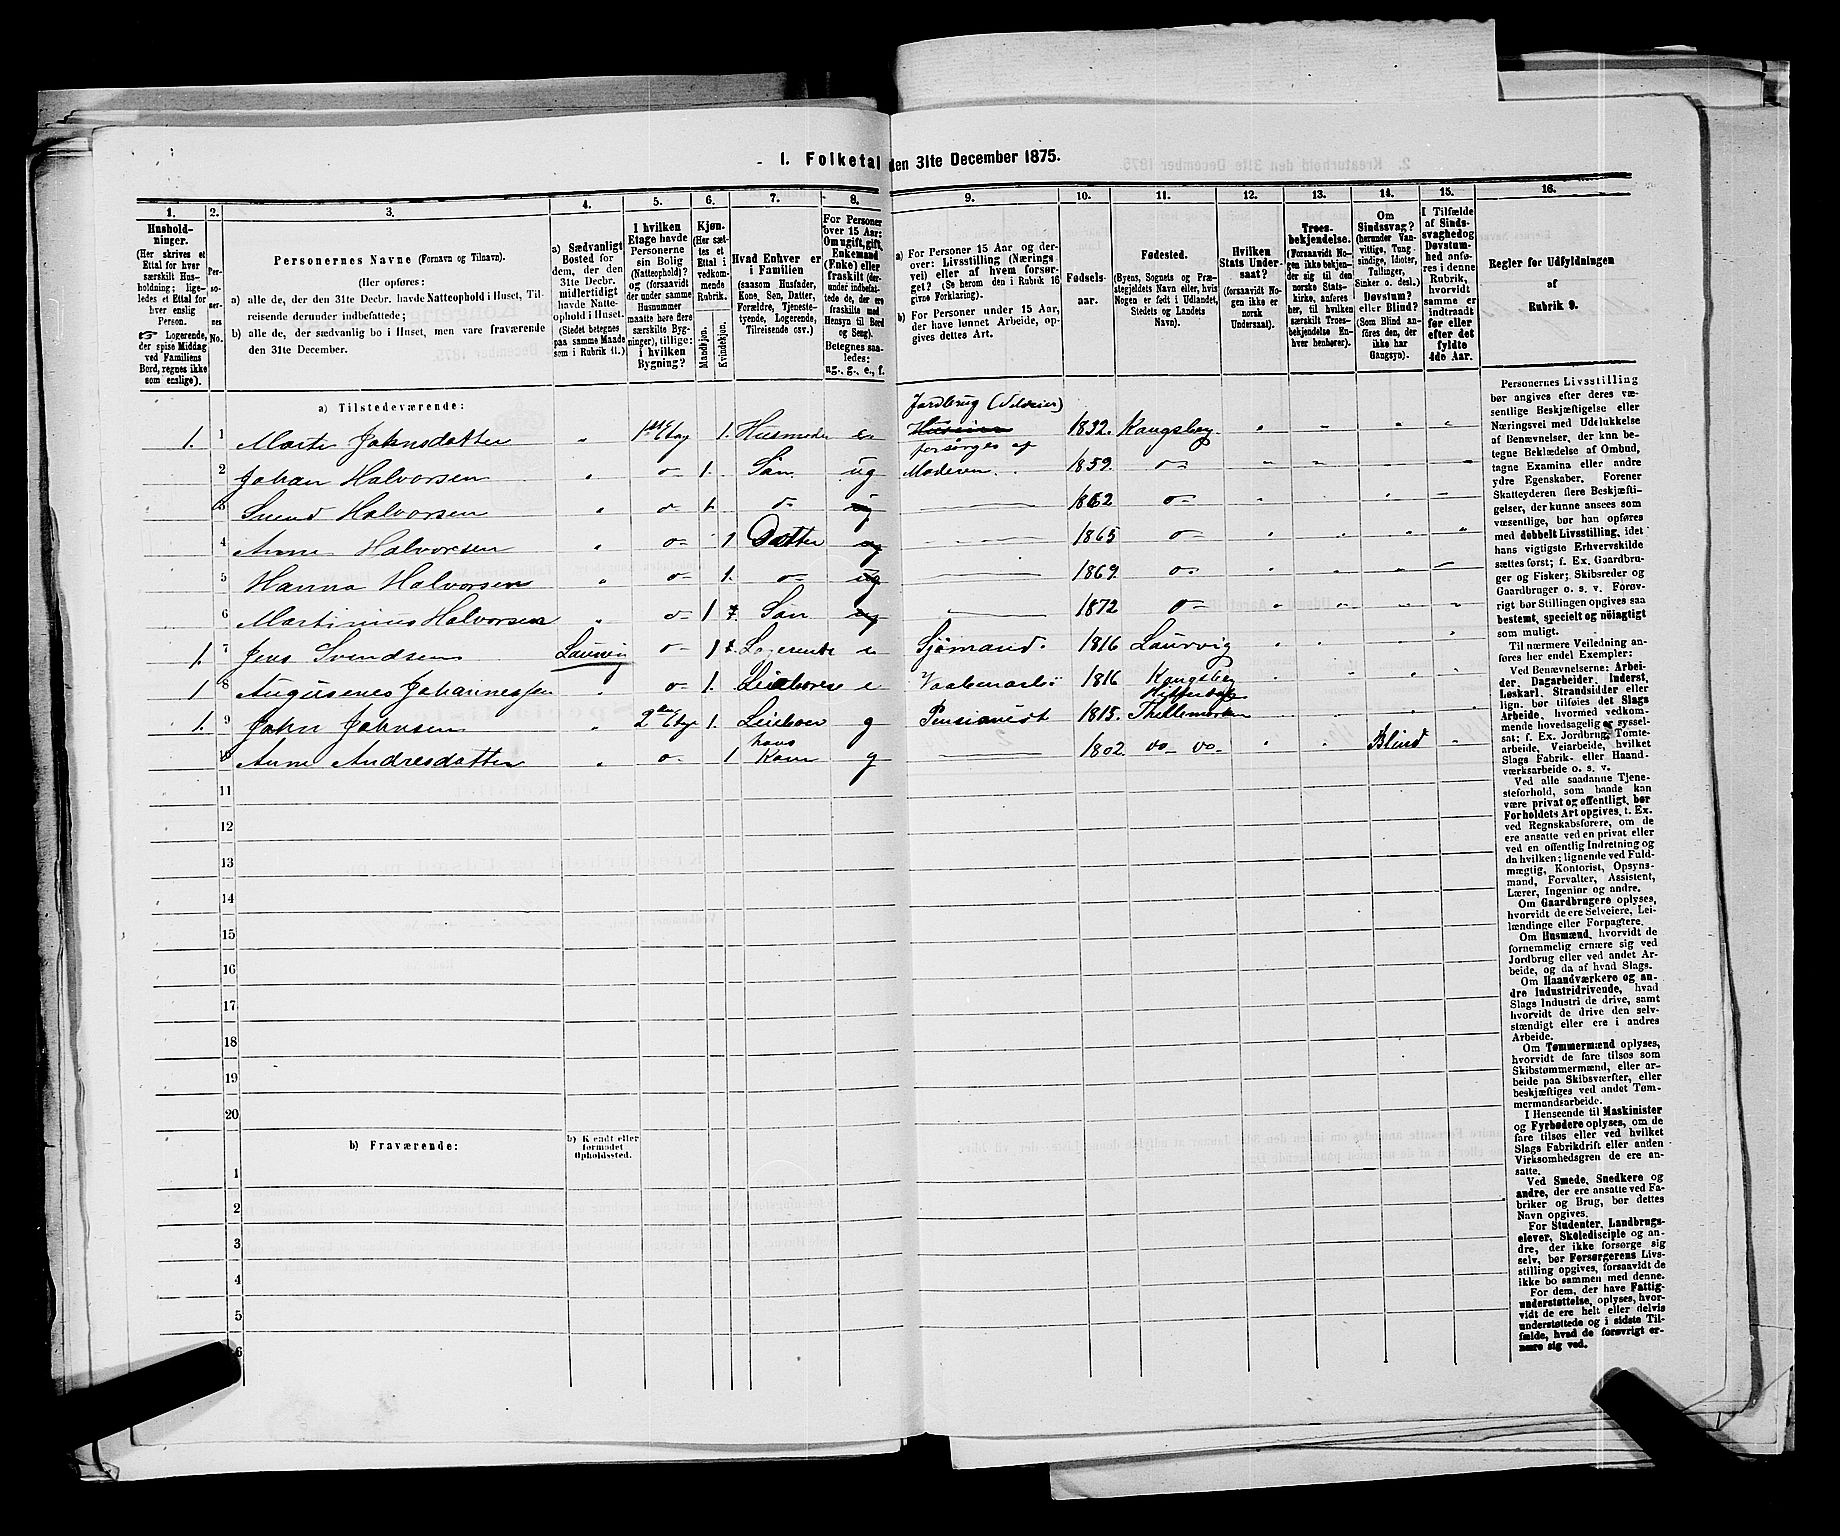 1. Folketal den 31te December 1875.
1.
2.
3.
4.
5.
6.
7.
8.
9.
10.
11.
12.
13.
14.
15.
16.
Husholdninger.
(Her skrives et
Ettal for hver
særskilt Husholdning;
ligeledes et Ettal for
hver enslig
Person.
Logerende,
der spise Middag
ved Familiens
Bord, regnes ikke
som enslige).
Personernes No.
Personernes Navne (Fornavn og Tilnavn).
(Her opføres:
a) alle de, der den 31te Decbr. havde Natteophold i Huset, Tilreisende
derunder indbefattede;
b) alle de, der sædvanlig bo i Huset, men vare fraværende
den 31te December.
a) Sædvanligt
Bosted for
dem, der den
31te Decbr.
midlertidigt
havde Natteophold
i Huset.
(Stedet betegnes
paa samme Maade
som i Rubrik 11.)
I hvilken
Etage havde
Personerne
sin Bolig
(Natteophold)?
og (forsaavidt
der under samme
Husnummer
maatte høre flere
særskilte Bygninger),
tillige:
i hvilken
Bygning?
Kjøn.
(Her sættes
et
Ettal i
vedkommende
Rubrik.
Mandkjøn.
Kvindekjøn.
Hvad Enhver er
i Familien
(saasom Husfader,
Kone, Søn, Datter,
Forældre, Tjenestetyende,
Logerende,
Tilreisende osv.)
For Personer
over 15 Aar:
Om ugift, gift,
Enkemand
(Enke) eller
fraskilt (derunder
indbefattede
de, der ere
fraskilte med
Hensyn til Bord
og Seng).
Betegnes saaledes:
ug., g., e., f.
a) For Personer 15 Aar og derover:
Livsstilling (Næringsvei)
eller af hvem forsørget?
(Se herom den i Rubrik 16
givne Forklaring).
b) For Personer under 15 Aar,
der have lønnet Arbeide, opgives
dettes Art.
Fødselsaar.
Fødested.
(Byens, Sognets og Præstegjeldets
Navn eller, hvis
Nogen er født i Udlandet,
Stedets og Landets
Navn).
Hvilken
Stats Undersaat?
(forsaavidt Nogen
ikke er
norsk
Undersaat).
Troesbekjendelse.
(Forsaavidt Nogen
ikke bekjender
sig til den
norske Statskirke,
anføres
her, til hvilken
særskilt Troesbekjendelse
Enhver
henhører).
Om
Sindssvag?
(herunder Vanvittige,
Tungsindige,
Idioter,
Tullinger,
Sinker o. desl.)
Døvstum?
eller Blind?
(Som Blind anføres
den, der
ikke har
Gangsyn).
I Tilfælde
af Sindssvaghed
og
Døvstumhed
anføres
i denne
Rubrik,
hvorvidt
samme er
indtraadt
før eller
efter det
fyldte
4de Aar.
Regler for Udfyldningen
af
Rubrik 9.
a) Tilstedeværende:
Jordbrug (Selveier)
1. 1 Marte Johnsdatter " 1ste Etag 1. Husmoder e 1832. Kongsberg " " " "
forsørges af
2 Johan Halvorsen " o- 1. Søn. ug Moderen. 1859. o- " " " "
3 Svend Halvorsen " o- 1. o- ug 1862 o- " " " "
4 Anne Halvorsen " o- 1 Datter ug 1865 o- " " " "
5 Hanna Halvorsen " o- 1. o- ug 1869. o- " " " "
6 Martinius Halvorsen " o- 1 Søn ug 1872 o- " " " "
1. 7 Jens Svendsen Laurvig o- 1 Logerende e Sjømand. 1816 Laurvig " " "
1 8 Augusenes Johannessen " o- 1. e 1816 Kongsberg " " " "
1. 9 John Johnsen " 2den Etage 1. g Pensionist 1815. Thellemarken " " " "
hans
10 Anne Andresdatter " o- 1 Kone g 1802. do- do- " " Blind "
11
12
13
14
15
16
17
18
19
20
b) Fraværende:
b) Kjendt eller
formodet
Opholdssted.
1
2
3
4
5
6
Personernes Livsstilling
bør angives efter deres væsentlige
Beskjæftigelse eller
Næringsvei med Udelukkelse
af Benævnelser, der kun betegne
Beklædelse af Ombud,
tagne Examina eller andre
ydre Egenskaber. Forener
Skatteyderen flere Beskjæftigelser,
der kunne ansees som
væsentlige, bør han opføres
med dobbelt Livsstilling, idet
hans vigtigste Erhvervskilde
sættes først; f. Ex. Gaardbruger
og Fisker; Skibsreder og
Gaardbruger o. s. v. Forøvrigt
bør Stillingen opgives saa
bestemt, specielt og nöiagtigt
som muligt.
Til nærmere Veiledning anføres
her endel Exempler:
Ved Benævnelserne: Arbeider,
Dagarbeider, Inderst,
Løskarl, Strandsidder eller
lign. bør tilføies det Slags
Arbeide, hvormed vedkommende
hovedsagelig er sysselsat;
f. Ex. Jordbrug, Tomtearbeide,
Veiarbeide, hvilket
Slags Fabrik- eller Haandværksarbeide
o. s. v.
Ved alle saadanne Tjenesteforhold,
som baade kan
være privat og offentligt, bør
Forholdets Art opgives, t. Ex.
ved Regnskabsførere, om de
ere ansatte ved en privat eller
ved en offentlig Indretning og
da hvilken; lignende ved Fuldmægtig,
Kontorist, Opsynsmand,
Forvalter, Assistent,
Lærer, Ingeniør og andre.
Om Gaardbrugere oplyses,
hvorvidt de ere Selveiere, Leilændinge
eller Forpagtere.
Om Husmænd, hvorvidt de
fornemmelig ernære sig ved
Jordbrug eller ved andet Arbeide,
og da af hvad Slags.
Om Haandværkere og andre
Industridrivende, hvad
Slags Industri de drive, samt
hvorvidt de drive den selvstændigt
eller ere i andres
Arbeide.
Om Tømmermænd oplyses,
hvorvidt de fare tilsøs som
Skibstømmermænd, eller arbeide
paa Skibsværfter, eller
beskjæftiges ved andet Tømmermandsarbeide.
I Henseende til Maskinister
og Fyrbødere oplyses, om de
fare tilsøs eller ved hvilket
Slags Fabrikdrift eller anden
Virksomhedsgren de ere ansatte.
Ved Smede, Snedkere og
andre, der ere ansatte ved Fabriker
og Brug, bør dettes
Navn opgives.
For Studenter, Landbrugselever,
Skoledisciple og andre,
der ikke forsørge sig
selv, bør Forsørgerens Livsstilling
opgives, forsaavidt de
ikke bo sammen med denne.
For dem, der have Fattigunderstøttelse,
oplyses, hvorvidt
de ere helt eller delvis
understøttede og i sidste Tilfælde,
hvad de forøvrigt ernære
sig ved.